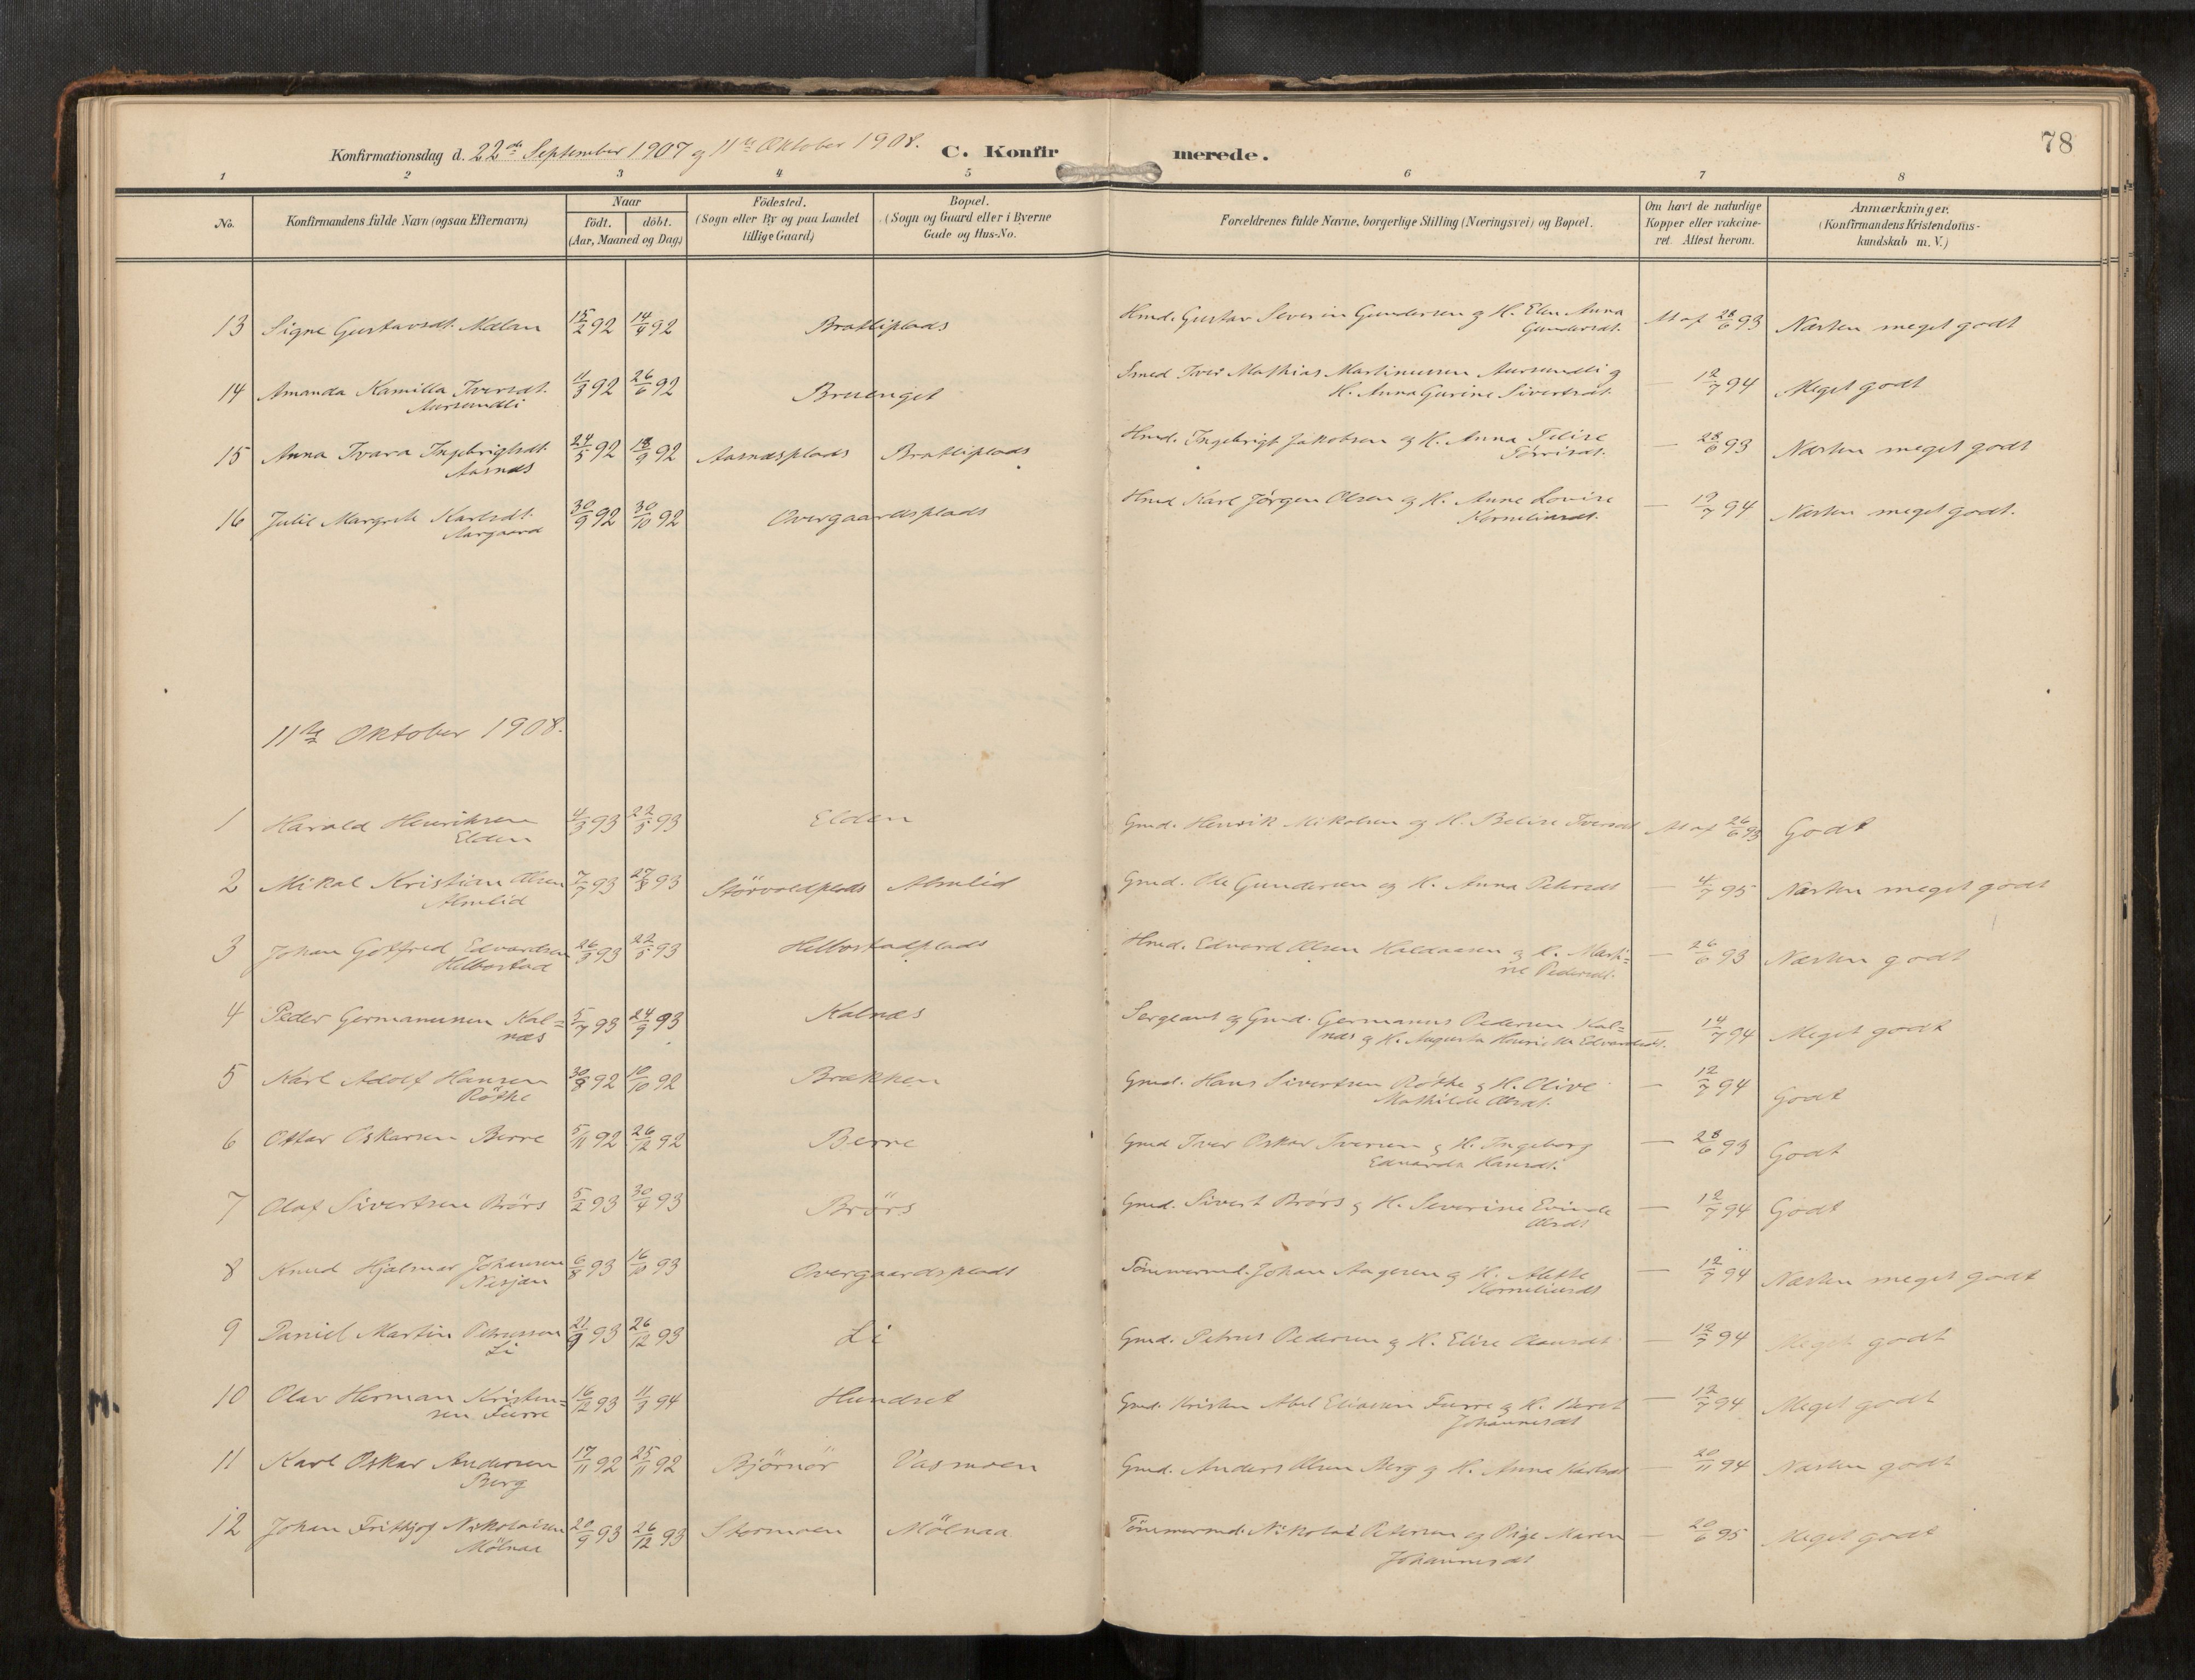 78
Konfirmationsdag d. 22de September 1907 og 11te Oktober 1908. C. Konfirmerede.
1 2 3 4 5 6 7 8
No. Konfirmandens fulde Navn (ogsaa Efternavn) Naar Födested. Bopæl. Forældrenes fulde Navne, borgerlige Stilling (Næringsvei) og Bopæl. Om havt de naturlige Anmærkninger.
födt. döbt. (Sogn eller By og paa Landet (Sogn og Gaard eller i Byerne Kopper eller vakcine- (Konfirmandens Kristendoms-
(Aar, Maaned og Dag) tillige Gaard) Gade og Hus-No. ret. Attest herom. kundskab m. V.)
13 Signe Gustavsdt. Mælan 15/2 92 14/4 92 Bratliplads Hmd. Gustav Severin Gundersen og H. Elen Anna At af 28/6 93 Næsten meget godt
Gundersdt.
14 Amanda Kamilla Iversdt. 11/3 92 26/6 92 Bruenget Smed Iver Mathias Martinussen Aursundli og — 12/7 94 Meget godt
Aursundli H. Anna Gurine Sivertsdt.
15 Anna Ivara Ingebrigtsdt. 24/5 92 18/9 92 Aasnæsplads Bratliplads Hmd. Ingebrigt Jakobsen og H. Anna Felise — 28/6 93 Næsten meget godt
Aasnæs Törrisdt.
16 Julie Margrete Karlsdt. 30/9 92 30/10 92 Overgaardsplads Hmd. Karl Jörgen Olsen og H. Anne Lovise — 12/7 94 Næsten meget godt.
Aargaard Korneliusdt.
11te Oktober 1908.
1 Harald Henriksen 4/3 93 22/5 93 Elden Gmd. Henrik Mikalsen og H. Beline Iversdt At af 26/6 93 Godt
Elden
2 Mikal Kristian Olsen 7/7 93 27/8 93 Störvoldplads Almlid Gmd. Ole Gundersen og H. Anna Petersdt — 4/7 95 Næsten meget godt
Almlid
3 Johan Gotfred Edvardsen 26/3 93 22/5 93 Helbostadplads Hmd. Edvard Olsen Haldaasen og H. Marti= — 26/6 93 Næsten godt
Helbostad ne Pedersdt.
4 Peder Germanussen Kal= 5/7 93 24/9 93 Kalnæs Sergeant og Gmd. Germanus Pedersen Kal= — 14/7 94 Meget godt
næs næs og H. Augusta Henriette Edvardsdt.
5 Karl Adolf Hansen 30/8 92 10/10 92 Brækken Gmd. Hans Sivertsen Röthe og H. Olive — 12/7 94 Godt
Röthe Mathilde Olsdt.
6 Ottar Oskarsen Berre 5/11 92 26/12 92 Berre Gmd Iver Oskar Iversen og H. Ingeborg — 28/6 93 Godt
Edvarda Hansdt.
7 Olaf Sivertsen Brörs 5/2 93 30/4 93 Brörs Gmd. Sivert Brörs og H. Severine Evinde — 12/7 94 Godt
Olsdt
8 Knud Hjalmar Johansen 6/8 93 16/10 93 Overgaardsplads Tömmermd. Johan Aagesen og H. Alette — 12/7 94 Næsten meget godt
Nesjan Korneliusdt
9 Daniel Martin Petrussen 21/9 93 26/12 93 Li Gmd. Petrus Pedersen og H. Elise Clausdt — 12/7 94 Meget godt
Li
M. 10 Olav Herman Kristen= 16/12 93 11/3 94 Hundset Gmd. Kristen Abel Eliassen Furre og H. Beret — 12/7 94 Meget godt
sen Furre Johannesdt
11 Karl Oskar Andersen 17/11 92 25/11 92 Björnör Vasmoen Gmd. Anders Olsen Berg og H. Anna Karlsdt — 20/11 94 Næsten godt
Berg
12 Johan Frithjof Nikolaisen 20/9 93 26/12 93 Stormoen Mölnaa Tömmermd. Nikolai Petersen og Pige Maren — 20/6 95 Meget godt
Mölnaa Johannesdt